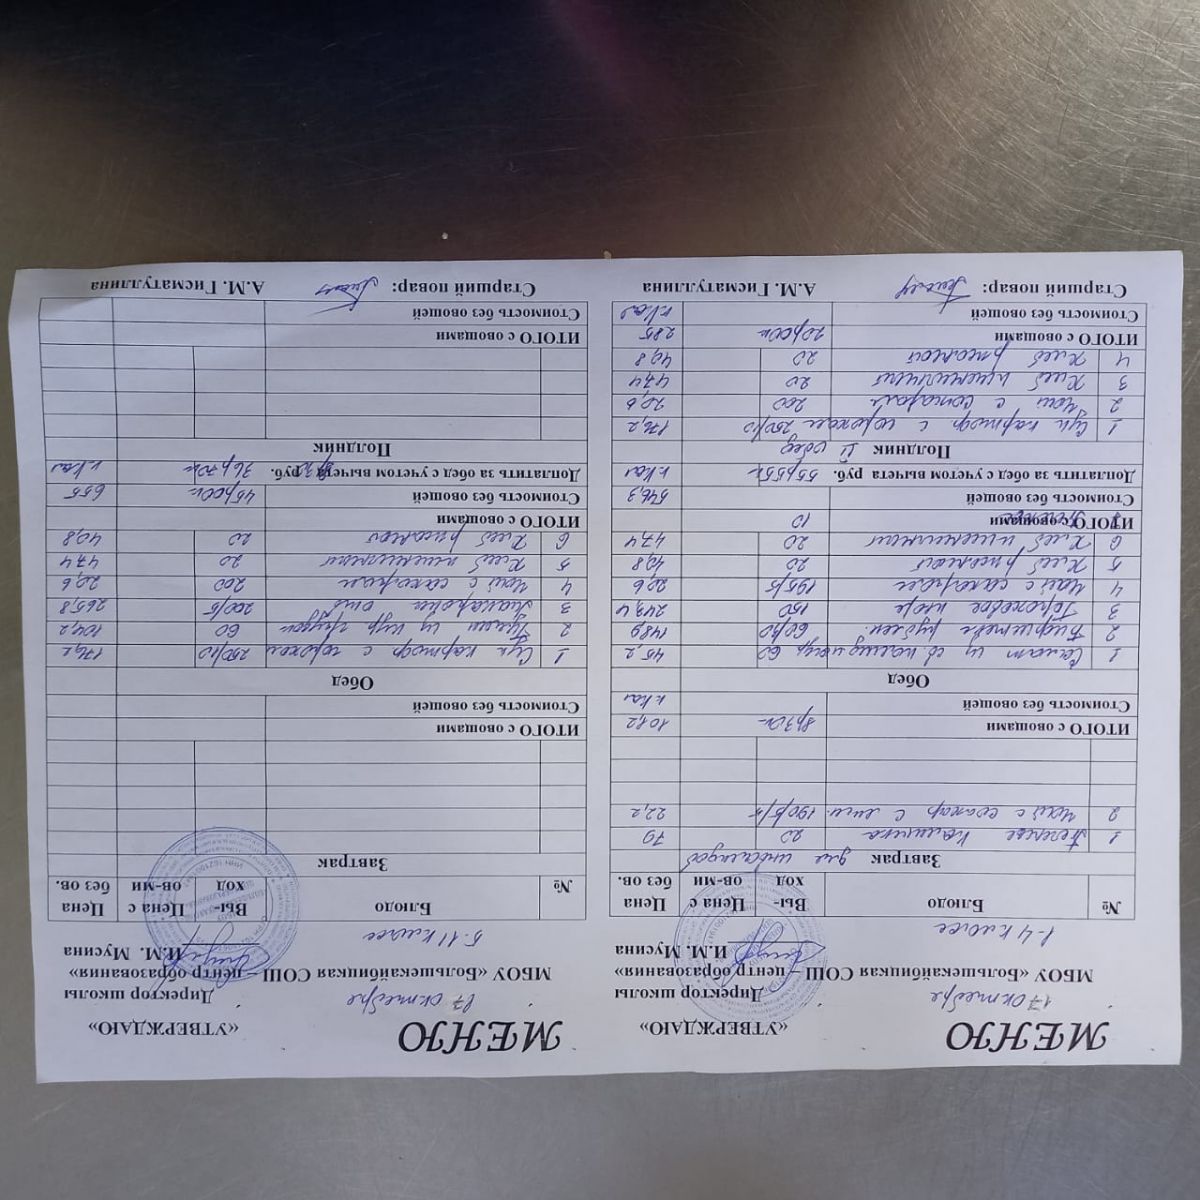 МЕНЮ «УТВЕРЖДАЮ»
17 октября Директор школы
МБОУ «Большекайбицкая СОШ – центр образования»
И.М. Мусина
1-4 классе
№ Блюдо Вы-ход Цена с ов-ми Цена без ов.
Завтрак для инвалидов
1 Печенье 20 79
2 Чай с сахар с лим. 190/5/5 22,2
ИТОГО с овощами 101,2
Стоимость без овощей ккал
Обед
1 Салат из 60 45,2
2 Бифштекс рублен. 148,9
3 Гороховое пюре 150 247,4
4 Чай с сахаром 195/5 20,6
5 Хлеб ржаной 20 40,8
6 Хлеб пшеничный 20 47,4
ИТОГО с овощами 10
Стоимость без овощей 546,3
Доплатить за обед с учетом вычета руб. 55р55к ккал
Полдник II обед
1 Суп картоф. с горохом 250/10 176,2
2 Чай с сахаром 200 20,6
3 Хлеб пшеничный 20 47,4
4 Хлеб ржаной 20 40,8
ИТОГО с овощами 20р00к 285
Стоимость без овощей ккал
Старший повар: А.М. Гисматуллина
МЕНЮ «УТВЕРЖДАЮ»
17 октября Директор школы
МБОУ «Большекайбицкая СОШ – центр образования»
И.М. Мусина
5-11 классе
№ Блюдо Вы-ход Цена с ов-ми Цена без ов.
Завтрак
ИТОГО с овощами
Стоимость без овощей
Обед
1 Суп картоф. с горохом 250/10 176,2
2 Гуляш из кур. грудок 60 104,2
3 Макароны отв 200/5 265,8
4 Чай с сахаром 200 20,6
5 Хлеб пшеничный 20 47,4
6 Хлеб ржаной 20 40,8
ИТОГО с овощами
Стоимость без овощей 45р00к 655
Доплатить за обед с учетом вычета руб. 36р70к ккал
Полдник
ИТОГО с овощами
Стоимость без овощей
Старший повар: А.М. Гисматуллина